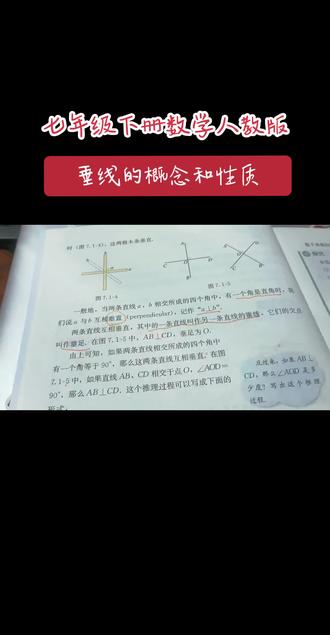 七年级下册数学人教版
垂线的概念和性质
时 (图 7.1-4), 这两根木条垂直.
图 7.1-4
图 7.1-5
一般地, 当两条直线 a, b 相交所成的四个角中, 有一个角是直角时, 我
们说 a 与 b 互相垂直 (perpendicular), 记作 “a⊥b”.
两条直线互相垂直, 其中的一条直线叫作另一条直线的垂线, 它们的交点
叫作垂足. 在图 7.1-5 中, AB⊥CD, 垂足为 O.
由上可知, 如果两条直线相交所成的四个角中
有一个角等于 90°, 那么这两条直线互相垂直. 在图
7.1-5 中, 如果直线 AB, CD 相交于点 O, ∠AOD=
90°, 那么 AB⊥CD. 这个推理过程可以写成下面的
形式:
反过来, 如果 AB⊥
CD, 那么∠AOD 是多
少度? 写出这个推理
过程.